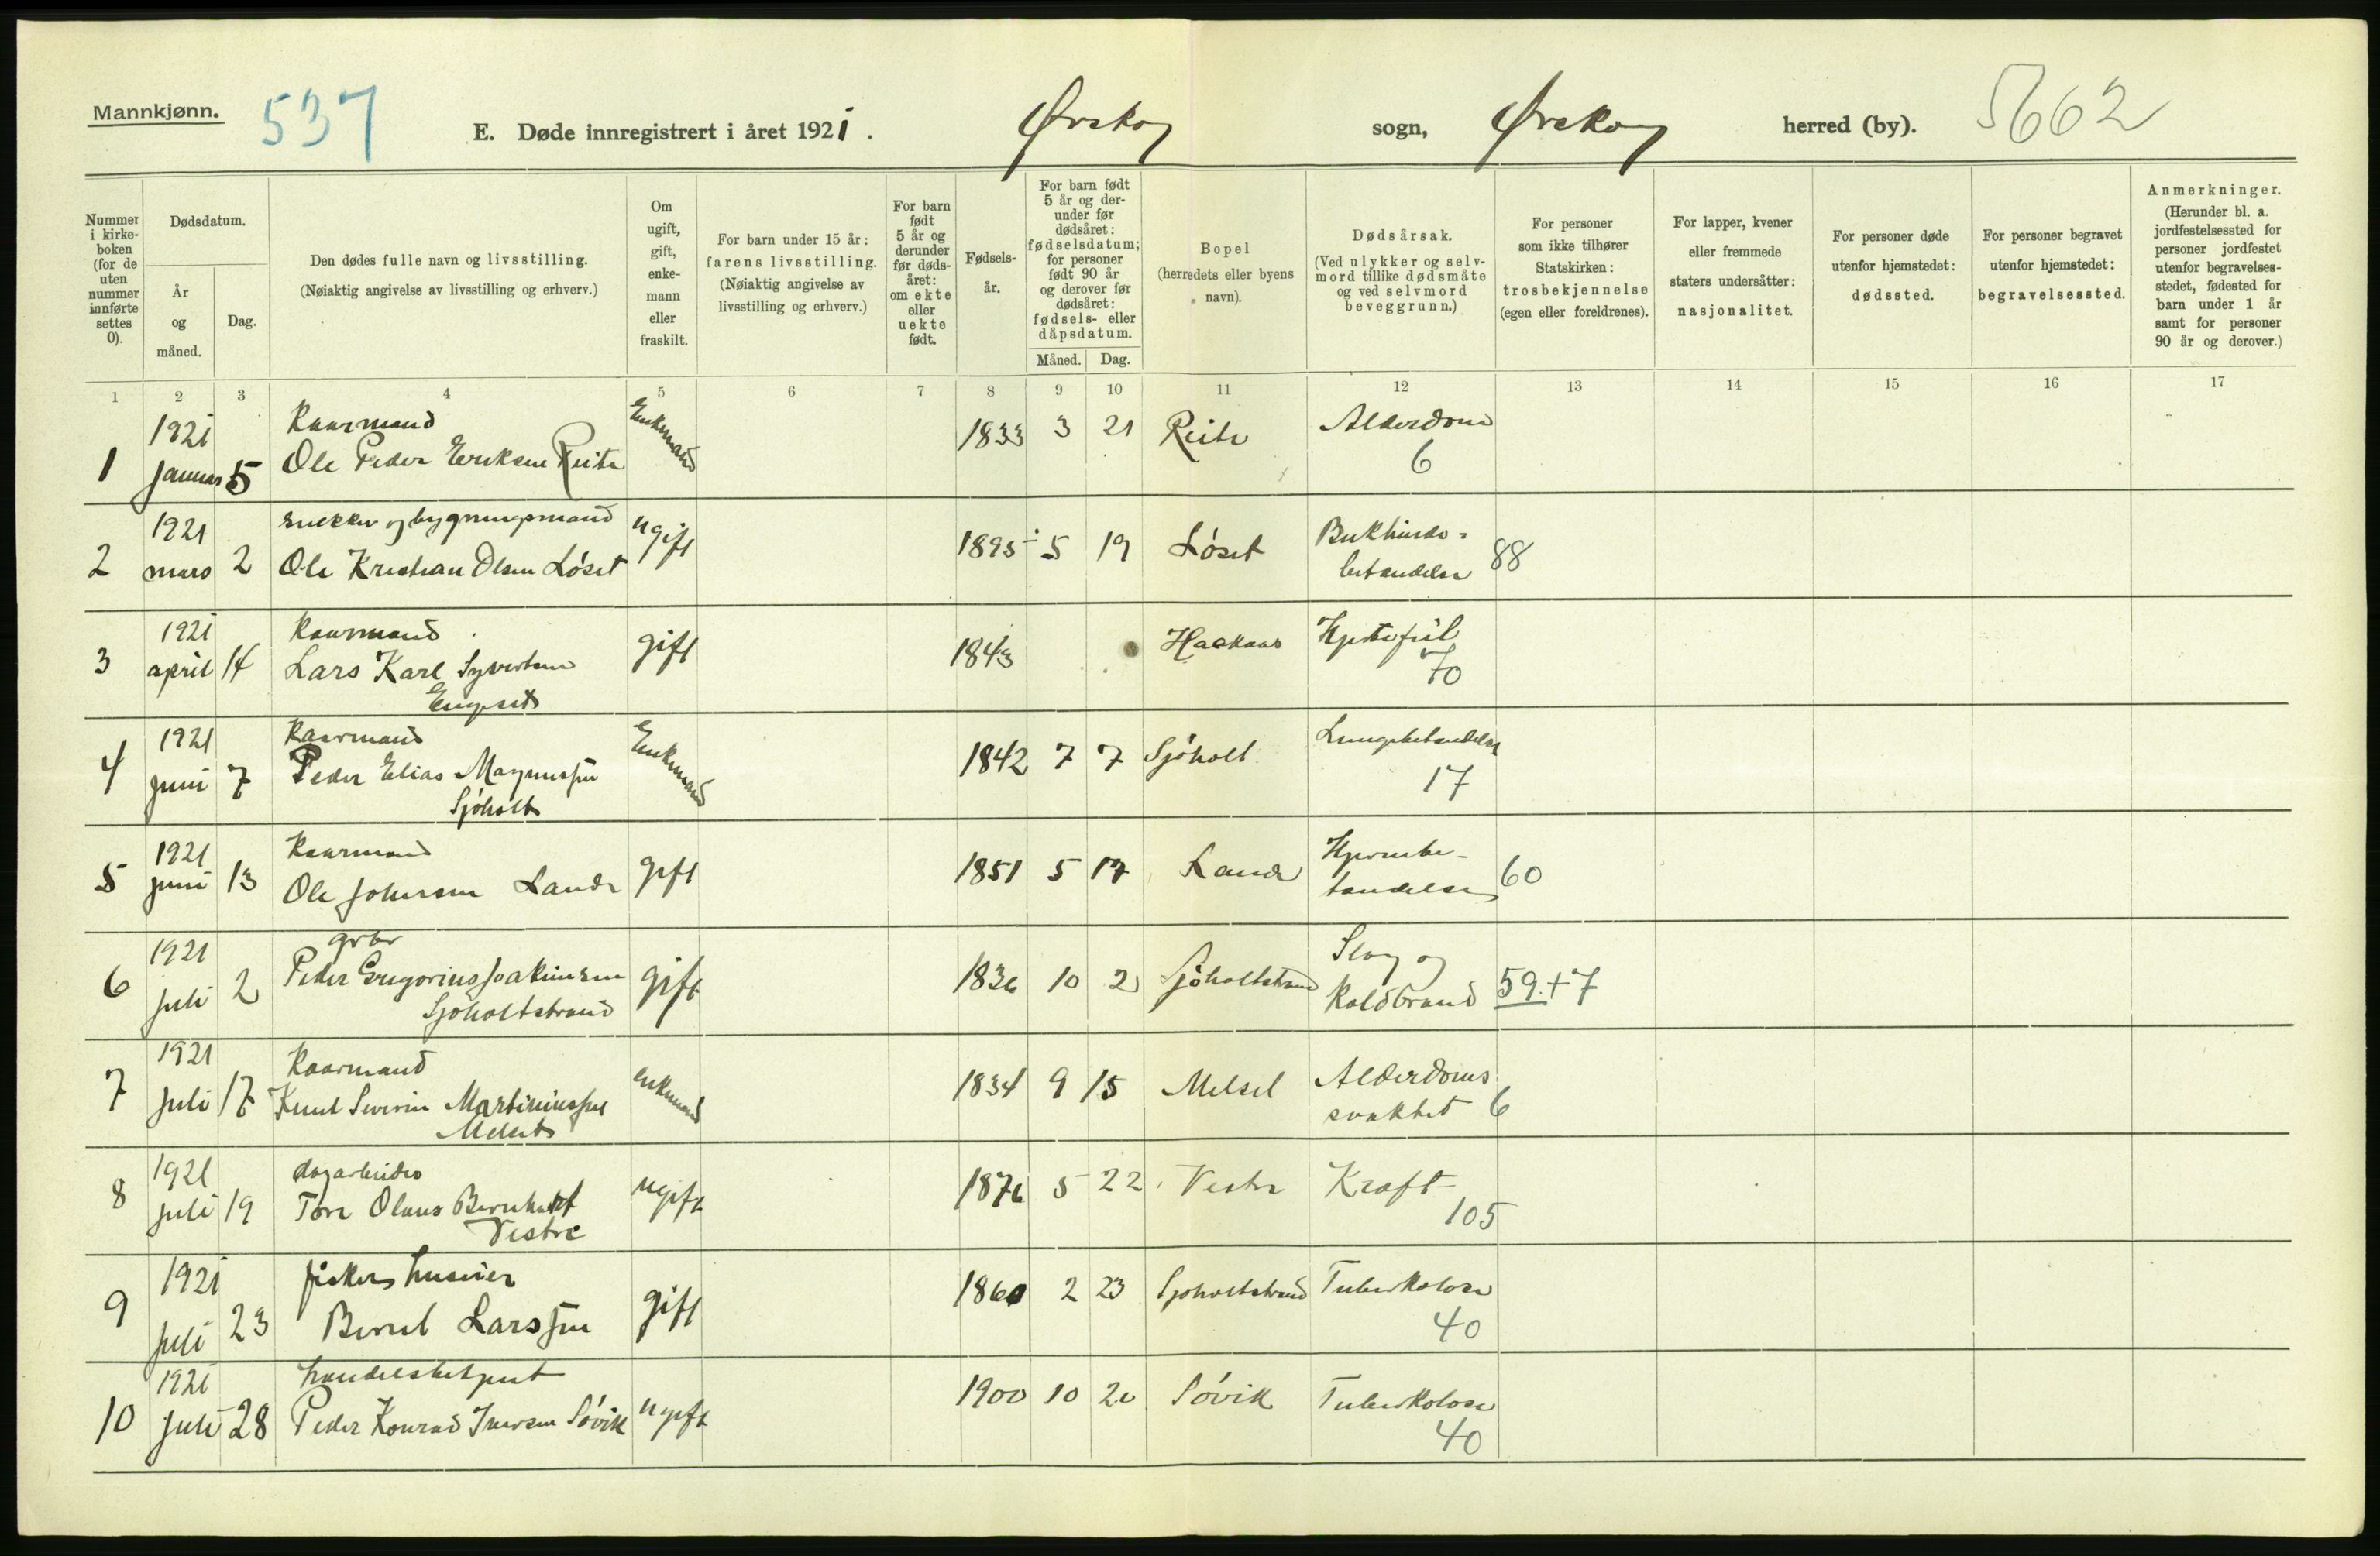 Mannkjønn.
537
E. Døde innregistrert i året 1921.
Ørskog sogn, Ørskog herred (by).
5662
Nummer i kirke-boken (for de uten nummer innførte settes 0).
Dødsdatum.
År og måned.
Dag.
Den dødes fulle navn og livsstilling.
(Nøiaktig angivelse av livsstilling og erhverv.)
Om ugift, gift, enke-mann eller fraskilt.
For barn under 15 år: farens livsstilling.
(Nøiaktig angivelse av livsstilling og erhverv.)
For barn født 5 år og derunder før døds-året: om ekte eller uekte født.
Fødsels-år.
For barn født 5 år og der-under før dødsåret: fødselsdatum; for personer født 90 år og derover før dødsåret: fødsels- eller dåpsdatum.
Måned. Dag.
Bopel (herredets eller byens navn).
Dødsårsak.
(Ved ulykker og selv-mord tillike dødsmåte og ved selvmord beveggrunn.)
For personer som ikke tilhører Statskirken: trosbekjennelse (egen eller foreldrenes).
For lapper, kvener eller fremmede staters undersåtter: nasjonalitet.
For personer døde utenfor hjemstedet: dødssted.
For personer begravet utenfor hjemstedet: begravelsessted.
Anmerkninger.
(Herunder bl. a. jordfestelsessted for personer jordfestet utenfor begravelses-stedet, fødested for barn under 1 år samt for personer 90 år og derover.)
1 2 3 4 5 6 7 8 9 10 11 12 13 14 15 16 17
1 1921 januar 5 Kaarmand Ole Peder Eriksen Reite Enkemand 1833 3 21 Reite Alderdom 6
2 1921 mars 2 snekker og bygningsmand Ole Kristian Olsen Løset ugift 1895 5 19 Løset Bukhinde-betændelse 88
3 1921 april 14 Kaarmand Lars Karl Syvertsen Engeset gift 1843 Haakaas Hjertefeil 70
4 1921 juni 7 Kaarmand Peder Elias Magnussen Sjøholt Enkemand 1842 7 7 Sjøholt Lungebetændelse 17
5 1921 juni 13 Kaarmand Ole Johnsen Lande gift 1851 5 17 Lande Hjernebe-tændelse 60
6 1921 juli 2 grbr Peder Gregorius Joakimsen Sjøholtstrand gift 1836 10 2 Sjøholtstrand Slag og Koldbrand 59.+7
7 1921 juli 17 Kaarmand Knut Severin Martinussen Melset enkemand 1834 9 15 Melset Alderdoms svakhet 6
8 1921 juli 19 dagarbeider Tore Olaus Bernhardt Vestre ugift 1876 5 22 Vestre Kræft 105
9 1921 juli 23 fisker, huseier Bernt Larssen gift 1860 2 23 Sjøholtstrand Tuberkolose 40
10 1921 juli 28 handelsbetjent Peder Konrad Iversen Søvik ugift 1900 10 20 Søvik Tuberkolose 40